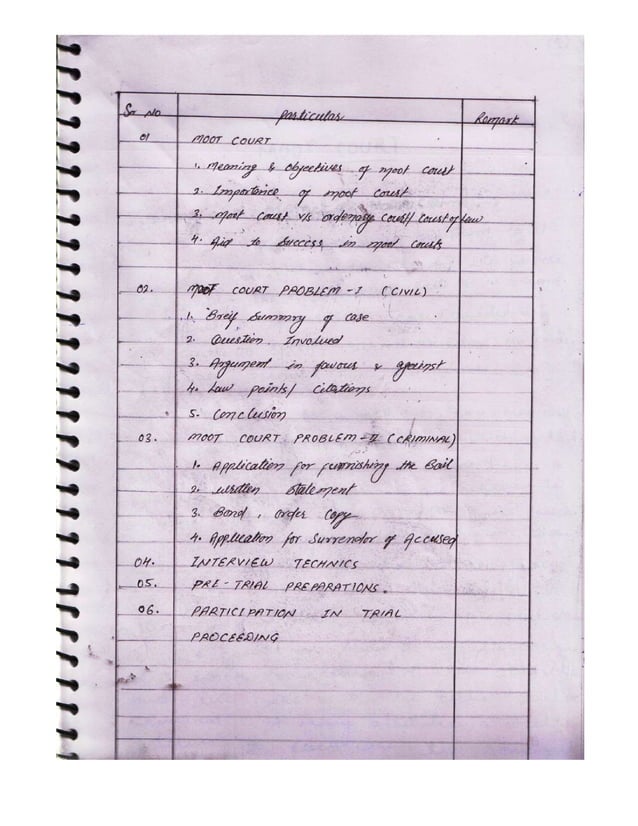 Sr No Particular Remark
01 MOOT COURT
1. Meaning & Objectives of moot court
2. Importance of moot court
3. Moot court v/s ordenage court/ court of law
4. Aid to Success in moot courts
02. MOOT COURT PROBLEM - I (CIVIL)
1. Breif Summry of case
2. Question Involved
3. Argument in favour & against
4. Law points/ Citations
5. Conclusion
03. MOOT COURT PROBLEM - II (CRIMINAL)
1. Application for furnishing the Bail
2. written statement
3. Bond, order Copy
4. Application for Surrender of Accused
04. INTERVIEW TECHNICS
05. PRE-TRIAL PREPARATIONS.
06. PARTICIPATION IN TRIAL
PROCEEDING